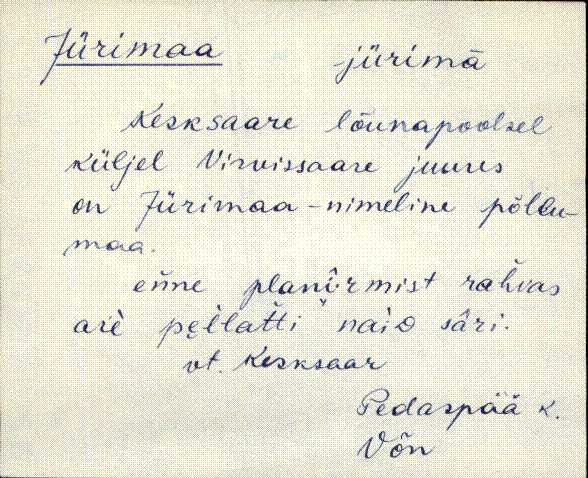 Jürimaa jürimā
Kesksaare lõunapoolsel
küljel Virvissaare juures
on Jürimaa-nimeline põllu-
maa.
enne planirmist rahvas
naid sāri.
vt. Kesksaar
Pedaspää k.
Võn